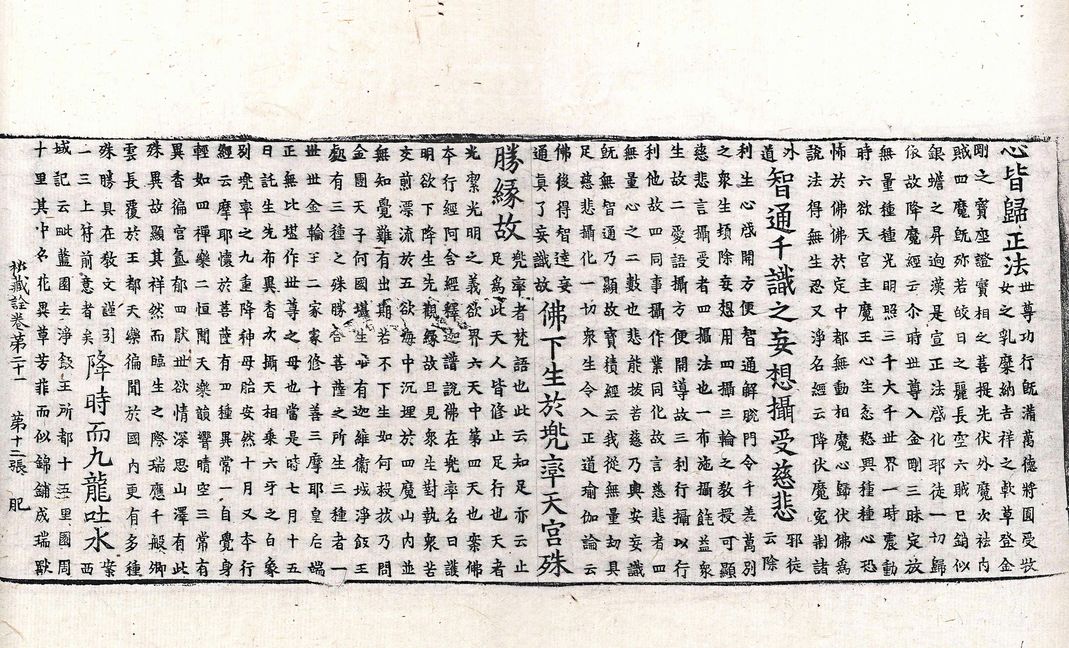 心皆歸正法世尊功行旣滿萬德將圓受牧
女之乳糜納吉祥之軟草登金
剛之寶座證實相之菩提先伏外魔次祛內
賊四魔旣殄若皎日之麗長空六賊已銷似
銀蟾之昇逈漢是宣正法啓化邪徒一切歸
依故降魔經云尒時世尊入金剛三昧定放
無量種種光明照三千大千世界一時震動
時六欲天宮主魔王心生忿怒興種種心恐
怖於佛佛於定中都無動相魔心歸伏佛爲
說法得無生忍又淨名經云降伏魔寃制諸
外道
智通千識之妄想攝受慈悲邪徒云除
利生心啓開方便智通解脫門令千差萬別
之衆生頓除妄想用四攝三輪之敎授可顯
慈悲言攝受者四攝法也一布施攝饒益衆
生故二愛語攝方便開導故三利行攝以行
利他故四同事攝作業同化故言慈悲者四
無量心之二數也悲能拔苦慈乃與樂妄識
旣無慈悲乃顯故寶積經云我從無量劫具
足慈悲攝化一切衆生令入正道瑜伽論云
佛後得智達妄
通眞了妄識故
佛下生於兜率天宮殊
勝緣故兜率者梵語也此云知足亦云止
足爲此天人皆修止足行也天者
光潔光明之義欲界六天中第四天也案佛
本行經阿含經釋迦譜說佛在兜率名曰護
明欲下降生先觀緣故且見衆生對執衆苦
交前漂流於五欲海中沉埋於四魔山內並
無知覺難有出期若不下生如何投拔乃問
金團天子何國堪生唯有迦維衛城淨飯王
處有三種之殊勝合菩薩之所生三種者一
世世金輪王二家家修十善三摩耶皇后端
正無比堪作世尊之母也當是時七月十五
日託生先布異香次攝天相乘六牙之白象
別兜率之九重降神母胎安然十月又本行
經云摩耶懷於菩薩有四種異常一自覺身
輕如四禪樂二恒聞天樂韻響晴空三常有
異香徧宮氳郁四厭世欲情深思山澤有此
殊異故顯其祥然而臨生之際瑞應千般卿
雲長覆於王都天樂徧聞於國內更有多種
殊勝具在敎文謹引
一二上符前意者矣
降時而九龍吐水案西
域記云毗藍園去淨飯王所都十五里國周
十里其中名花異草芳菲而似錦鋪成瑞獸
秘藏詮卷第二十一 第十二張 肥